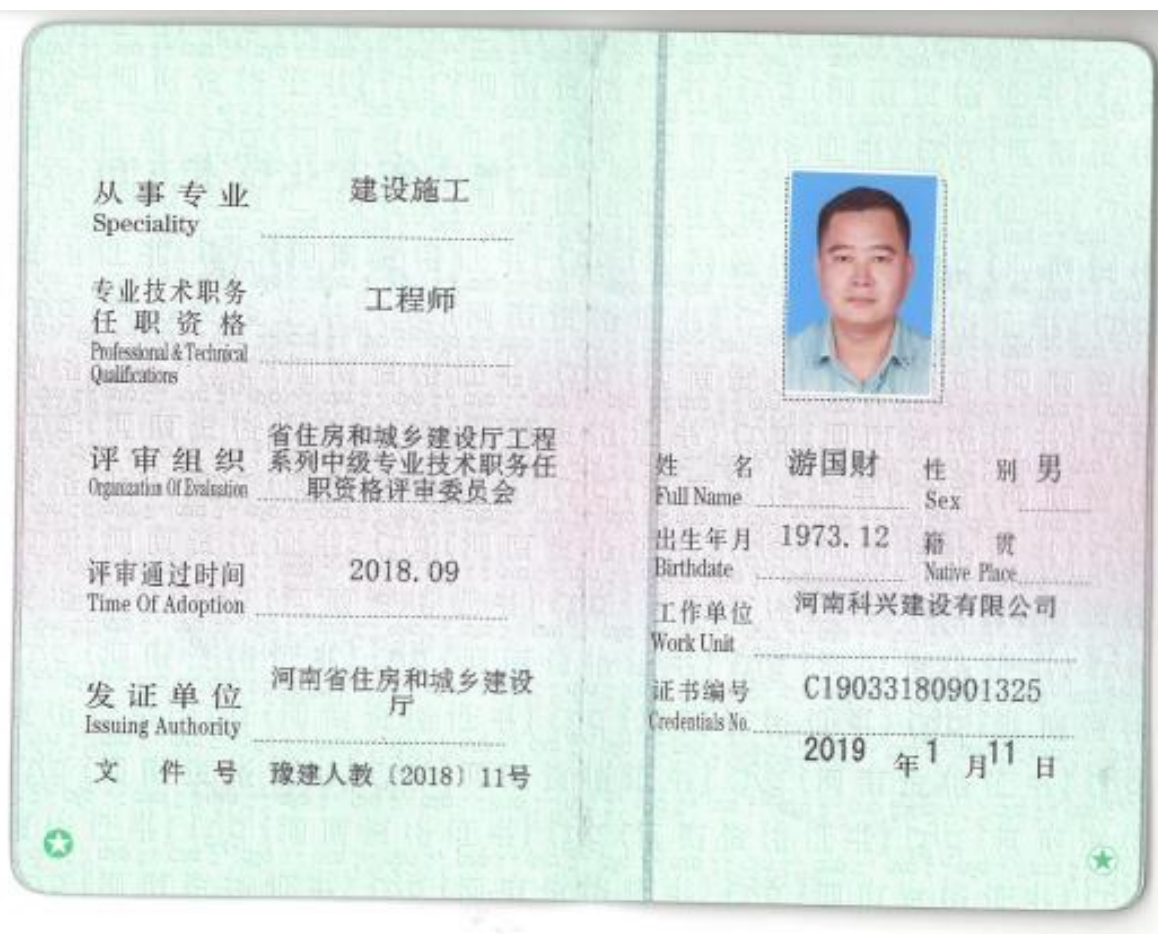 从事专业 建设施工
Speciality
专业技术职务 工程师
任职资格
Professional & Technical
Qualifications
省住房和城乡建设厅工程
评审组织 系列中级专业技术职务任
Organization Of Evaluation 职资格评审委员会
评审通过时间 2018.09
Time Of Adoption
发证单位 河南省住房和城乡建设
厅
Issuing Authority
文件号 豫建人教〔2018〕11号
姓名 游国财 性别 男
Full Name Sex
出生年月 1973.12 籍贯
Birthdate Native Place
工作单位 河南科兴建设有限公司
Work Unit
证书编号 C19033180901325
Credentials No.
2019 年 1 月 11 日